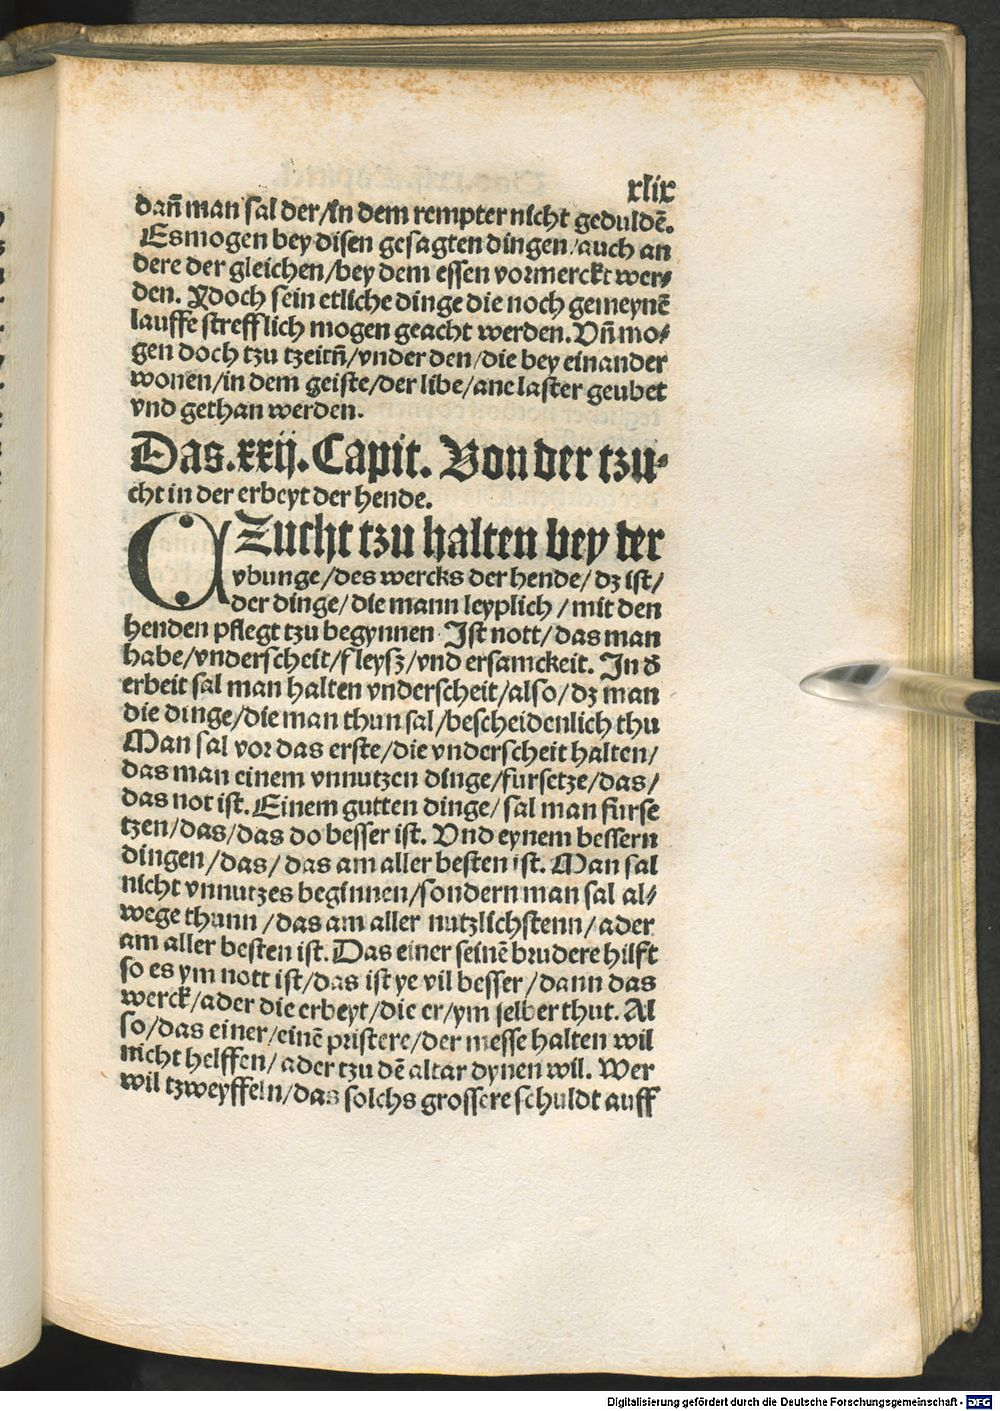 xlix
dañ man sal der/in dem rempter nicht geduldē.
Esmogen bey disen gesagten dingen/auch an
dere der gleichen/bey dem essen vormerckt wer/
den. Ydoch sein etliche dinge die noch gemeynē
lauffe strefflich mogen geacht werden. Vñ mo/
gen doch tzu tzeitñ/vnder den/die bey einander
wonen/in dem geiste/der libe/ane laster geubet
vnd gethan werden.
Das.xxij.Capit. Von der tzu/
cht in der erbeyt der hende.
CZucht tzu halten bey der
vbunge/des wercks der hende/dz ist/
der dinge/die mann leyplich/mit den
henden pflegt tzu begynnen. Ist nott/das man
habe/vnderscheit/fleysz/vnd ersamckeit. In d
erbeit sal man halten vnderscheit/also/dz man
die dinge/die man thun sal/bescheidenlich thu
Man sal vor das erste/die vnderscheit halten/
das man einem vnnutzen dinge/fursetze/das/
das not ist. Einem gutten dinge/sal man furse
tzen/das/das do besser ist. Vnd eynem bessern
dingen/das/das am aller besten ist. Man sal
nicht vnnutzes beginnen/sondern man sal al/
wege thunn/das am aller nutzlichstenn/ader
am aller besten ist. Das einer seinē brudere hilft
so es ym nott ist/das ist ye vil besser/dann das
werck/ader die erbeyt/die er/ym selber thut. Al
so/das einer/einē pristere/der messe halten wil
nicht helffen/ader tzu dē altar dynen wil. Wer
wil tzweyffeln/das solchs grossere schuldt auff
Digitalisierung gefördert durch die Deutsche Forschungsgemeinschaft - DFG